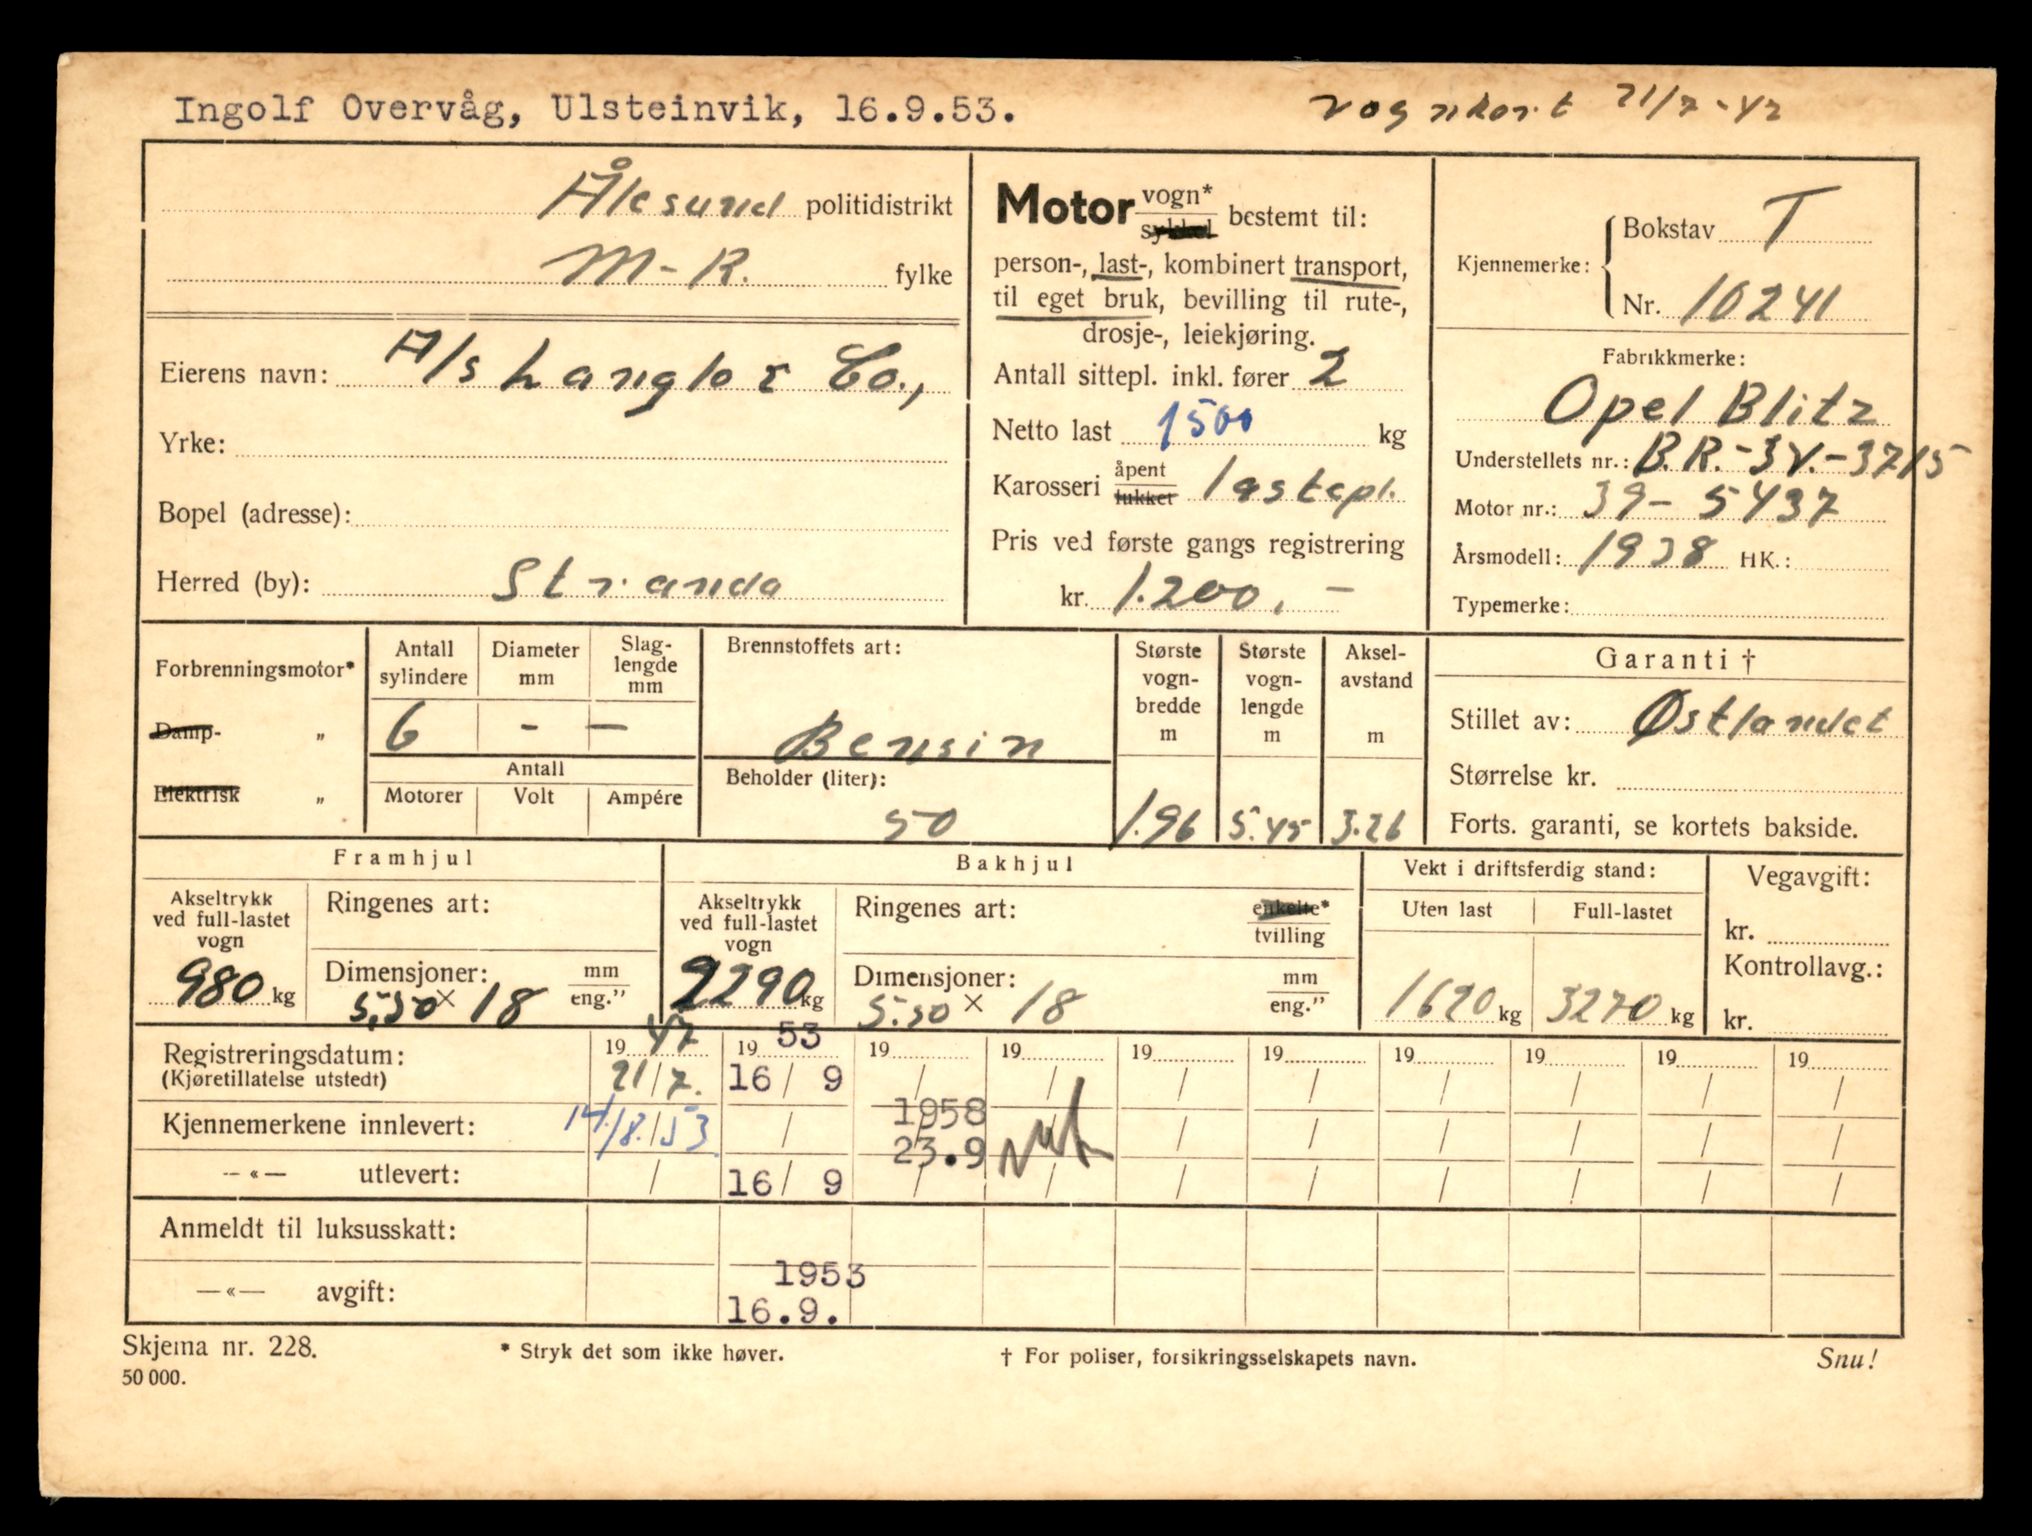 Ingolf Overvåg, Ulsteinvik, 16.9.53.
vognkort 21/7-47
Ålesund politidistrikt
M-R. fylke
Eierens navn: A/s Langlo & Co.,
Yrke:
Bopel (adresse):
Herred (by): Stranda
Motor vogn* sykkel bestemt til:
person-, last-, kombinert transport,
til eget bruk, bevilling til rute-,
drosje-, leiekjøring.
Antall sittepl. inkl. fører 2
Netto last 1500 kg
Karosseri åpent lukket lastepl.
Pris ved første gangs registrering
kr. 1.200,-
Kjennemerke: Bokstav T
Nr. 10241
Fabrikkmerke:
Opel Blitz
Understellets nr.: B.R.-3V.-3715
Motor nr.: 39-5437
Årsmodell: 1938 HK.:
Typemerke:
Forbrenningsmotor*
Damp- „
Elektrisk „
Antall sylindere
Diameter mm
Slag-lengde mm
6 - -
Antall
Motorer Volt Ampére
Brennstoffets art:
Bensin
Beholder (liter):
50
Største vogn-bredde m
1.96
Største vogn-lengde m
5.45
Aksel-avstand m
3.26
Garanti †
Stillet av: Østlandet
Størrelse kr.
Forts. garanti, se kortets bakside.
Framhjul
Akseltrykk ved full-lastet vogn
980 kg
Ringenes art:
Dimensjoner: mm eng."
5.50 x 18
Bakhjul
Akseltrykk ved full-lastet vogn
2290 kg
Ringenes art: enkelte* tvilling
Dimensjoner: mm eng."
5.50 x 18
Vekt i driftsferdig stand:
Uten last Full-lastet
1620 kg 3270 kg
Vegavgift:
kr.
Kontrollavg.:
kr.
Registreringsdatum: 19 47 19 53 19 19 19 19 19 19 19 19
(Kjøretillatelse utstedt) 21/7. 16/ 9 / / / / / / / /
Kjennemerkene innlevert: 14./8./53 / 1958 23.9
-«- utlevert: / 16/ 9 / / / / / / / /
Anmeldt til luksusskatt:
-«- avgift: 1953 16.9.
Skjema nr. 228.
* Stryk det som ikke høver.
† For poliser, forsikringsselskapets navn.
Snu!
50 000.